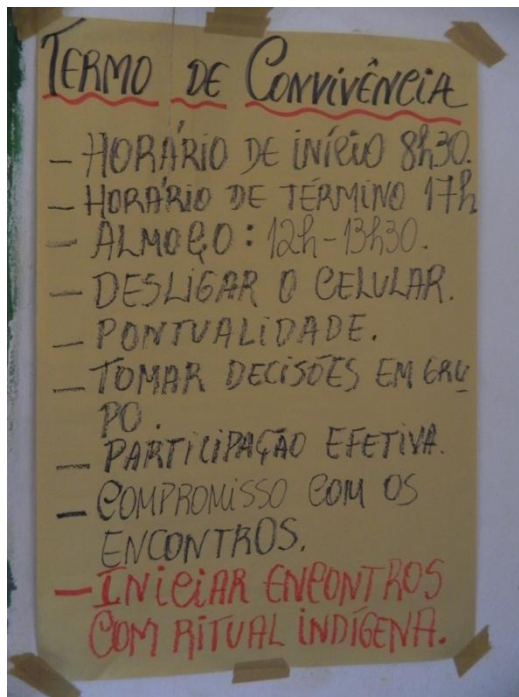 TERMO DE CONVIVÊNCIA
- HORÁRIO DE INÍCIO 8h30.
- HORÁRIO DE TÉRMINO 17h
- ALMOÇO: 12h-13h30.
- DESLIGAR O CELULAR.
- PONTUALIDADE.
- TOMAR DECISÕES EM GRU
PO.
- PARTICIPAÇÃO EFETIVA.
- COMPROMISSO COM OS
ENCONTROS.
- INICIAR ENCONTROS
COM RITUAL INDÍGENA.